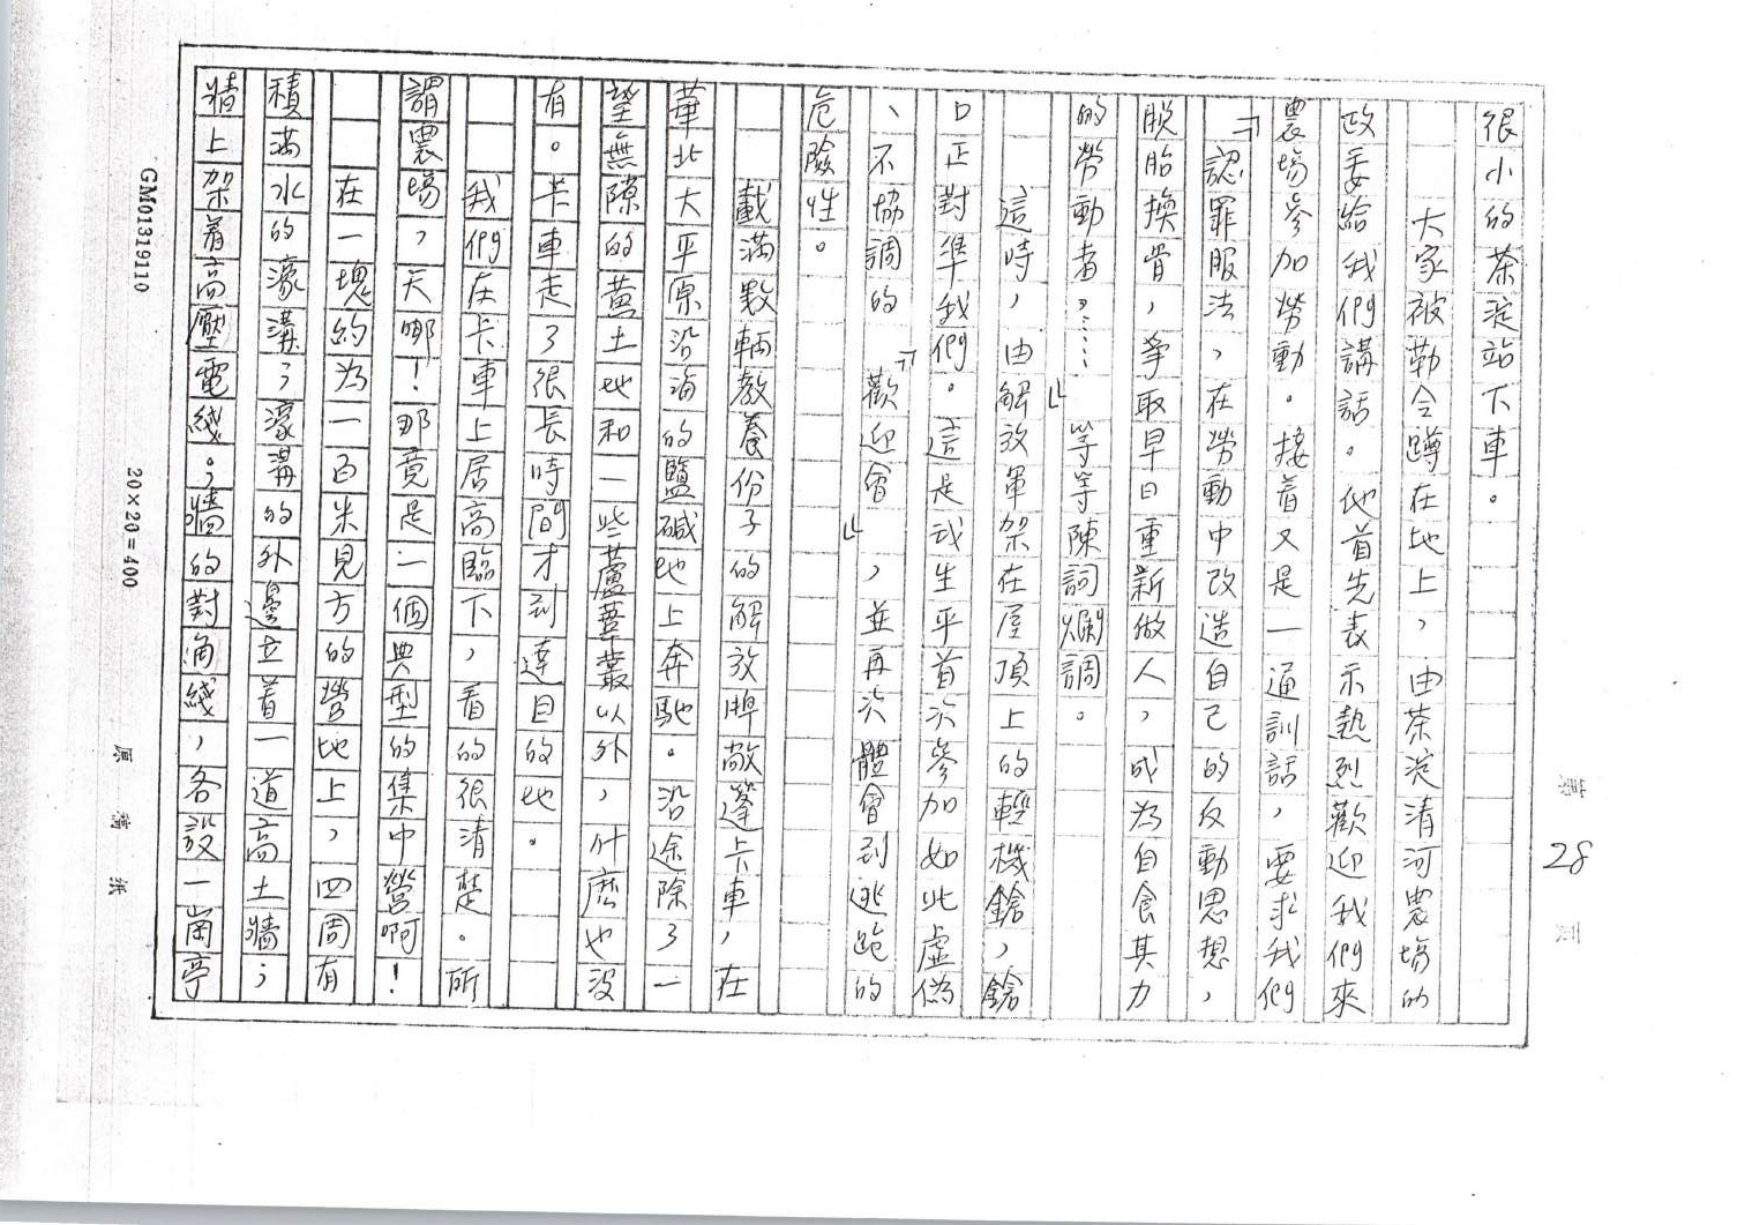 第 28 頁
很小的茶淀站下車。
大家被勒令蹲在地上，由茶淀清河農場的
政委給我們講話。他首先表示熱烈歡迎我們來
農場參加勞動。接着又是一通訓話，要求我們
『認罪服法，在勞動中改造自己的反動思想，
脫胎換骨，爭取早日重新做人，成為自食其力
的勞動者……』等等陳詞爛調。
這時，由解放軍架在屋頂上的輕機鎗，鎗
口正對準我們。這是我生平首次參加如此虛偽
、不協調的『歡迎會』，並再次體會到逃跑的
危險性。
載滿數輛教養份子的解放牌敞篷卡車，在
華北大平原沿海的鹽碱地上奔馳。沿途除了一
望無隙的黃土地和一些蘆葦叢以外，什麽也沒
有。卡車走了很長時間才到達目的地。
我們在卡車上居高臨下，看的很清楚。所
謂農場，天哪！那竟是一個典型的集中營啊！
在一塊約為一百米見方的營地上，四周有
積滿水的濠溝；濠溝的外邊立着一道高土牆；
牆上架着高壓電綫。；牆的對角綫，各設一崗亭
GM01319110
20×20=400
原稿紙